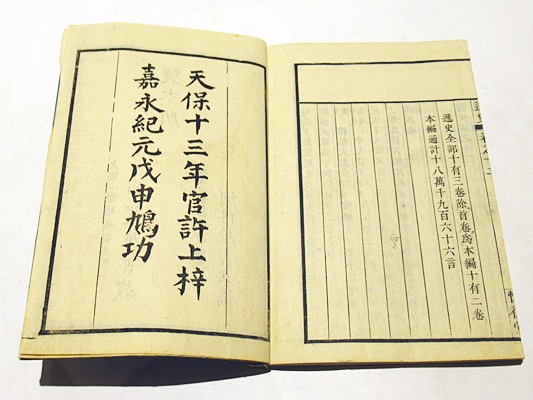 通史全部十有三卷除首卷爲本編十有二卷
本編通計十八萬千九百六十六言
天保十三年官許上梓
嘉永紀元戊申鳩功